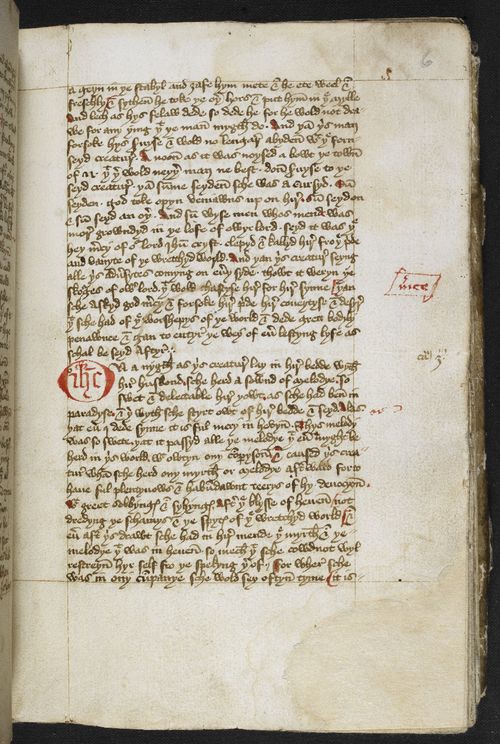 a geyn in þe stabyl and ȝafe hym mete & he ete weel &
freschly. & sythen he toke þe oþ hors & put hym in þe mylle
And lech as hys felaw dede so dede he for he wold not dra-
we for any þing þt þe man myght do. And þan þis man
forsoke hys seruyse & wold no lengar abyden wt þe forn
seyd creatur. A noon as it was noysed a bowte þe town
of N. þt þer wold neyþer man ne best. don seruyse to þe
seyd creatur þan summe seyden sche was a cursyd. sum
seyden. god toke opyn veniawns up on hir. sum seyden
& sum seyd an oþer. And sum wyse men whos mend was
mor growndyd in þe lofe of owr lord. seyd it was þe
hey mercy of our lord ihu cryst. clepyd & kallyd hir fro þe pride
and vanyte of þe wretthyd world. And þan þis creatur seyng
alle þis aduersytes comyng on euery syde thowt it weryn þe
skorges of owr lord þt wold chastyse hir for hir synne. þan
sche askyd god mercy & forsoke hir pride hir coueytyse & desyr
þt sche had of þe worshepys of þe world & dede grett bodyly
penawnce & gan to entyr þe wey of euer lestyng lyfe as
schal be seyd aftyr.
ihc
On a nygth as þis creatur lay in hir bedde wyth
hir husbond. sche herd a sownd of melodye so
swet & delectable hir þowt. as sche had ben in
paradyse. & þer wyth sche styrt owt of hir bedde & seyd. Alas
þat euer I dede synne it is ful mery in hevyn. Thys melody
was so swete. þat it passyd alle þe melodye þt euer myght be
herd in þis world wt owtyn ony comparyson. & causyd þis crea
tur whan sche herd ony myrth or melodye aftirward for to
haue ful plentyuows & habundawnt teerys of hy deuocyon.
wt greet sobbyngs & syhyngs. aftr þe blysse of heuen. not
dredyng þe schamys & þe spytys of þe wretchyd world. &
euer aftr þis drawt sche had in hir mende þe myrth & þe
melodye þt was in heuen. so mech þt sche cowd not wyl
restreyn hyr self fro þe spekyng þer of. For wher sche
was in ony cumpanye sche wold sey oftyn tyme. it is
6